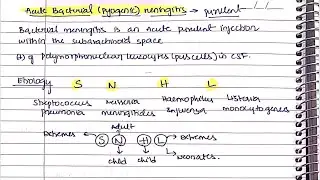 Acute Bacterial (Pyogenic) meningitis → purulent
Bacterial meningitis is an Acute purulent injection
within the subarachnoid space
(↑) of Polymorphonuclear leucocytes (pus cells) in CSF.
Etiology S N H L
Streptococcus Neisseria Haemophilus Listeria
pneumonia meningitidis Influenzae monocytogenes
extremes adult
S N H L → extremes
child child neonates.